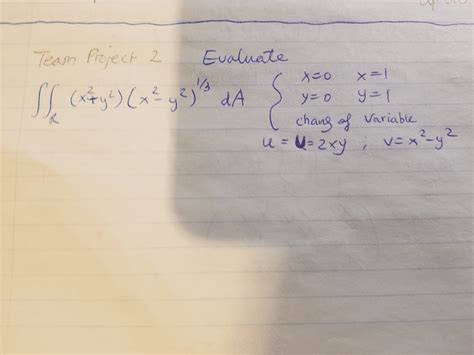 Team Project 2 Evaluate
∬_R (x²+y²)(x²-y²)^1/3 dA { x=0 x=1
y=0 y=1
chang of Variable
u = u=2xy ; v=x²-y²